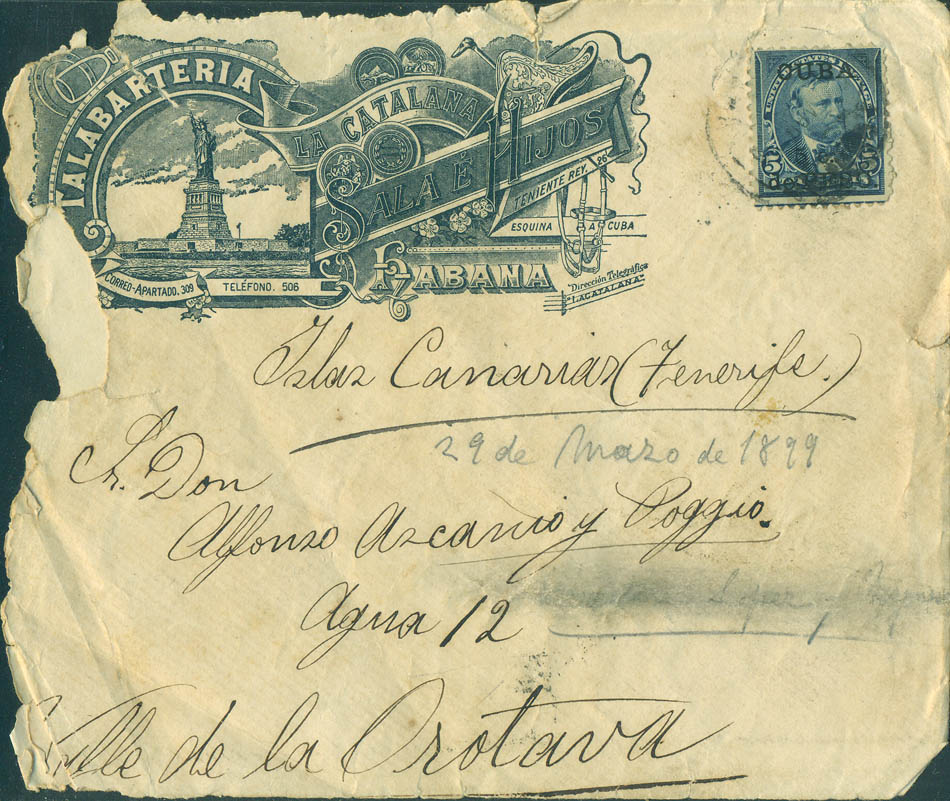 TALABARTERIA
LA CATALANA
SALA É HIJOS
TENIENTE REY, 96
ESQUINA A CUBA
HABANA
"Dirección Telegráfica
"LACATALANA"
CORREO-APARTADO. 309
TELÉFONO. 506
CUBA
5 5
Islas Canarias (Tenerife.)
29 de Marzo de 1899
Sr. Don
Alfonso Ascanio y Poggio.
Agua 12
Valle de la Orotava